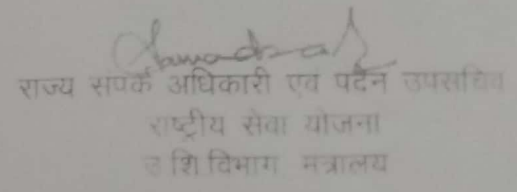 राज्य संपर्क अधिकारी एवं पदेन उपसचिव
राष्ट्रीय सेवा योजना
उ शि विभाग मंत्रालय